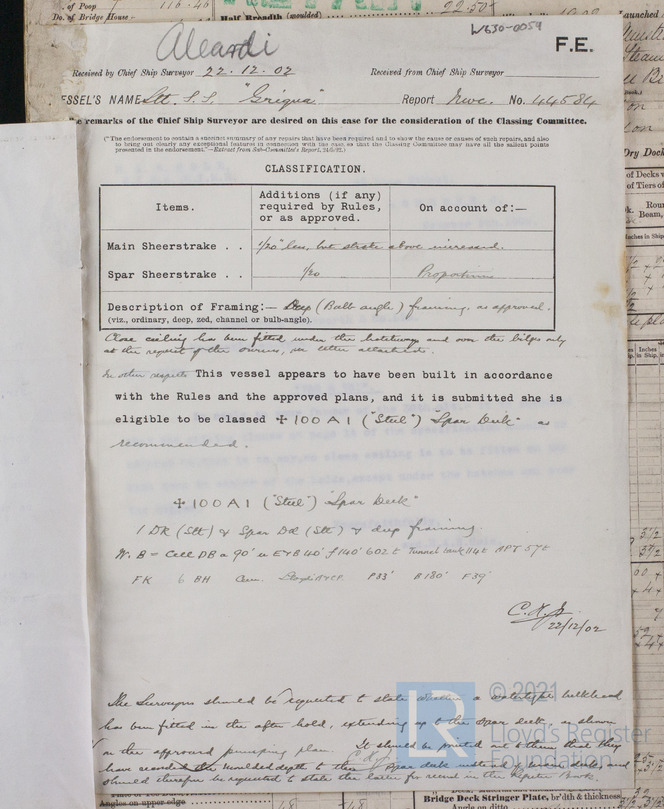 of Poop 116.46
Do. of Bridge House
Half Breadth (moulded) 22.50
Launched
Aleardi
W630-0059
F.E.
Received by Chief Ship Surveyor 22.12.02 Received from Chief Ship Surveyor
ESSEL'S NAME Stl. S.S. "Griqua" Report Nwc. No. 44584
e remarks of the Chief Ship Surveyor are desired on this case for the consideration of the Classing Committee.
("The endorsement to contain a succinct summary of any repairs that have been required and to show the cause or causes of such repairs, and also
to bring out clearly any exceptional features in connection with the case, so that the Classing Committee may have all the salient points
presented in the endorsement."—Extract from Sub-Committee's Report,
CLASSIFICATION.
Items. Additions (if any) required by Rules, or as approved. On account of:—
Main Sheerstrake . . 1/20" less, but strake above increased.
Spar Sheerstrake . . 1/20 Proportions
Description of Framing:— Deep (Bulb angle) framing, as approved.
(viz., ordinary, deep, zed, channel or bulb-angle).
Close ceiling has been fitted under the hatchways and over the bilges only
at the request of the owners, see letter attached.
In other respects This vessel appears to have been built in accordance
with the Rules and the approved plans, and it is submitted she is
eligible to be classed ✠ 100 A 1 ("Steel") "Spar Deck" as
recommended.
✠ 100 A 1 ("Steel") "Spar Deck"
1 DK (Stl) & Spar Dk (Stl) & deep framing.
W.B = Cell DB a 90' u E&B 40' f 140' 602t Tunnel tank 114t APT 57t
FK 6 BH Cem. P33' B180' F39'
22/12/02
The Surveyors should be requested to state whether a watertight bulkhead
has been fitted in the after hold, extending up to the spar deck, as shown
on the approved pumping plan. It should be pointed out to them that they
have recorded the moulded depth to the spar deck instead of main deck, and
should therefore be requested to state the latter for record in the Register Book.
© 2021
LR
Lloyd's Register
Foundation
Dry Dock
of Decks
of Tiers of
Beam,
Angles on upper edge
Bridge Deck Stringer Plate, br'dth & thickness
Angle on ditto